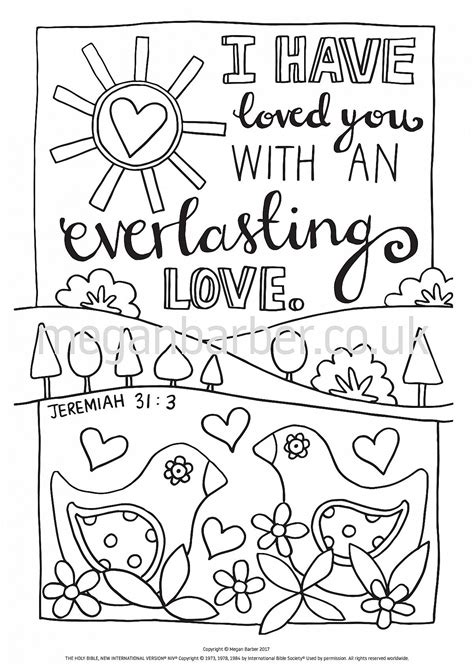 I HAVE
loved you
WITH AN
everlasting
LOVE.
meganbarber.co.uk
JEREMIAH 31:3
Copyright © Megan Barber 2017
THE HOLY BIBLE, NEW INTERNATIONAL VERSION® NIV® Copyright © 1973, 1978, 1984 by International Bible Society® Used by permission. All rights reserved worldwide.